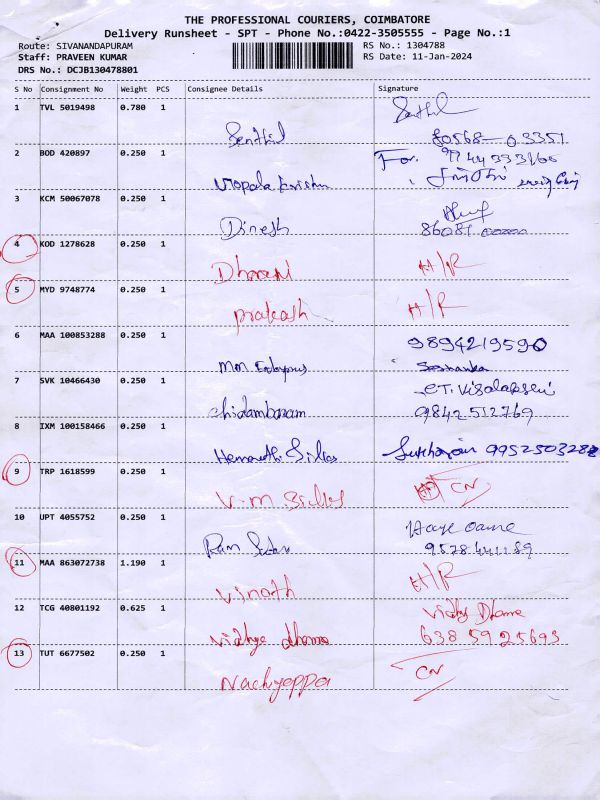 THE PROFESSIONAL COURIERS, COIMBATORE
Delivery Runsheet - SPT - Phone No.:0422-3505555 - Page No.:1
Route: SIVANANDAPURAM RS No.: 1304788
Staff: PRAVEEN KUMAR RS Date: 11-Jan-2024
DRS No.: DCJB130478801
S No Consignment No Weight PCS Consignee Details Signature
1 TVL 5019498 0.780 1 Senthil Senthil
80568-03351
2 BOD 420897 0.250 1 For.
3 KCM 50067078 0.250 1 Dinesh
86081
4 KOD 1278628 0.250 1 Dharani H/R
5 MYD 9748774 0.250 1 prakash H/R
6 MAA 100853288 0.250 1 9894219590
7 SVK 10466430 0.250 1 chidambaram
9842512769
8 IXM 100158466 0.250 1
9 TRP 1618599 0.250 1 V.m CN
10 UPT 4055752 0.250 1 Ram
9578441189
11 MAA 863072738 1.190 1 Vinoth H/R
12 TCG 40801192 0.625 1 Vidhye dhame Vidhy Dhame
638 59 25693
13 TUT 6677502 0.250 1 Nachiyappa CN